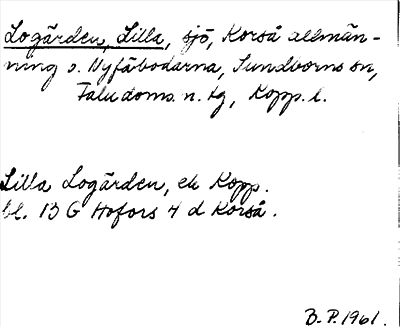 Logården, Lilla, sjö, Korså allmän-
ning o. Nyfäbodarna, Sundborns sn,
Falu doms. n. tg, Kopp. l.
Lilla Logården, ek Kopp.
bl. 13 G Hofors 4 d Korså.
B.P. 1961.